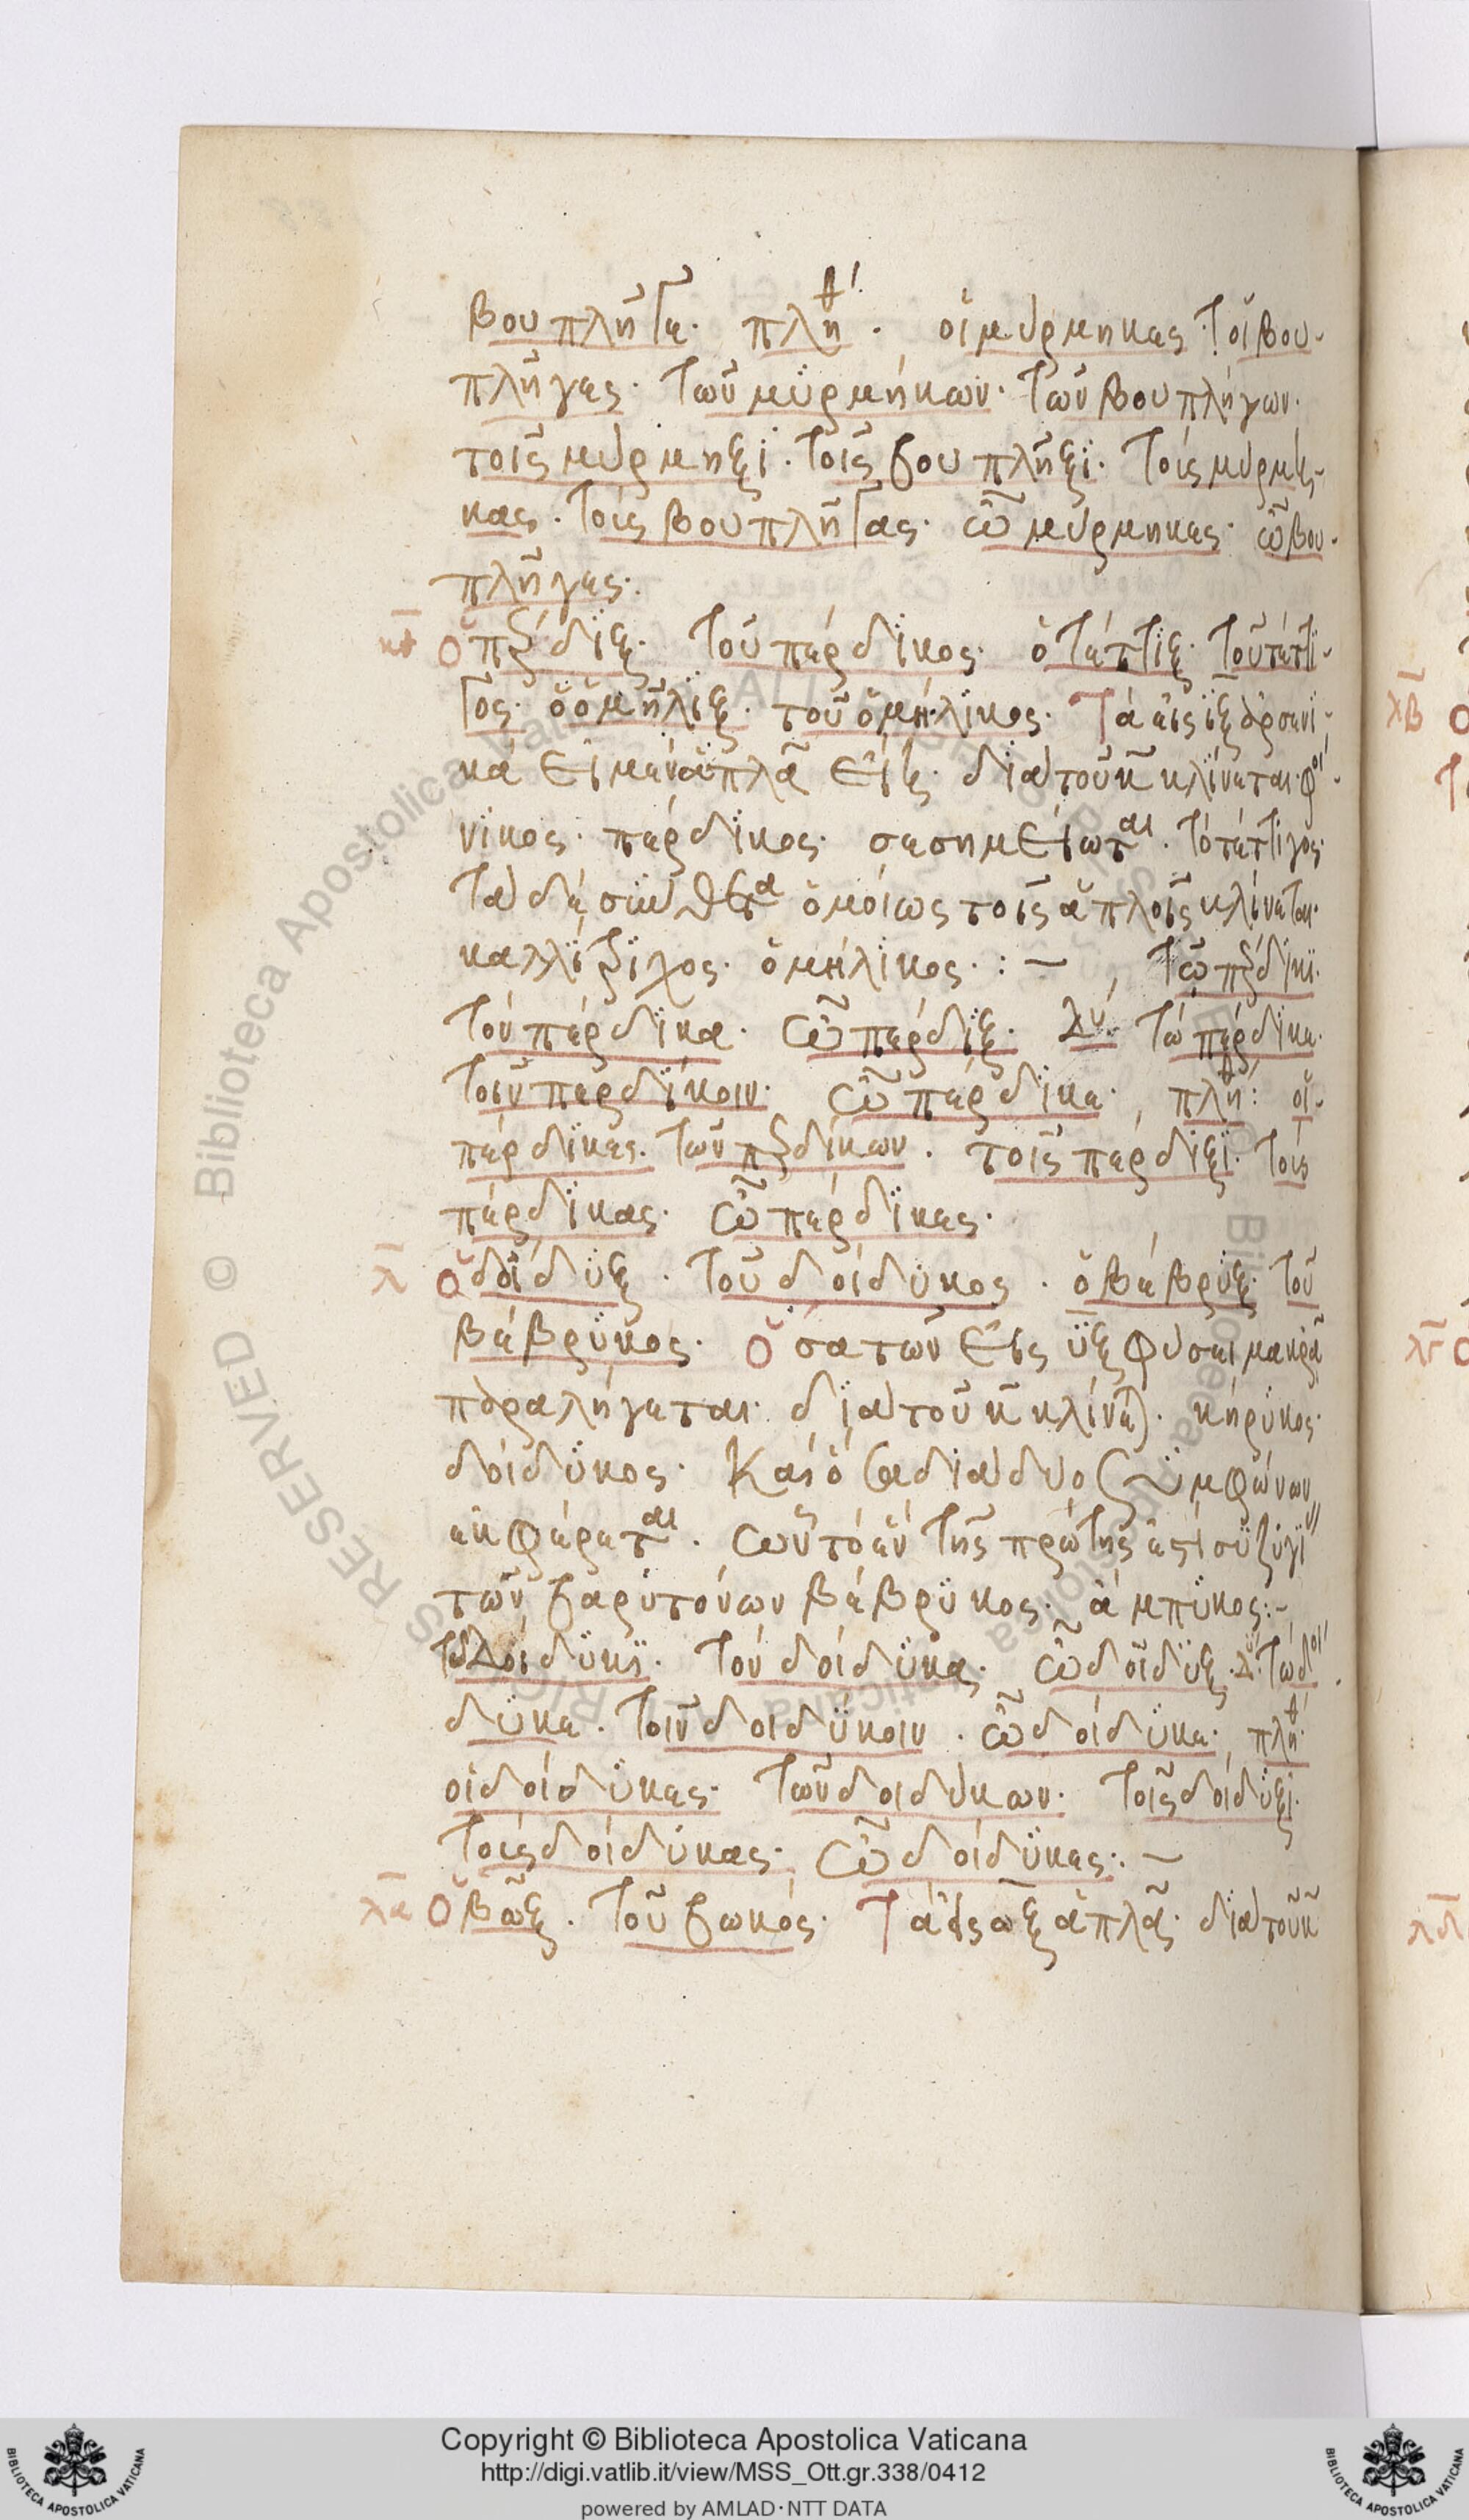 βουπλῆγε. πλη^θ΄. οἱ μύρμηκες. τοὶ βου-
πλῆγες. τῶν μυρμήκων. τῶν βουπλήγων.
τοῖς μύρμηξι. τοῖς βουπλῆξι. τοὺς μύρμη-
κας. τοὺς βουπλῆγας. ὦ μύρμηκες. ὦ βου-
πλῆγες.
κθ ὁ πέρδιξ. τοῦ πέρδικος. ὁ τέττιξ. τοῦ τέττι-
γος. ὁ ὁμῆλιξ. τοῦ ὁμήλικος. Τὰ εἰς ιξ ἀρσενι-
κὰ εἰ μὲν ἁπλᾶ εἴη. διὰ τοῦ κ κλίνεται. φοί-
νικος. πέρδικος. σεσημείωται. τὸ τέττιγος.
τὰ δὲ σύνθετα ὁμοίως τοῖς ἁπλοῖς κλίνεται.
καλλίτριχος. ὁμήλικος. :— τῷ πέρδικι.
τὸν πέρδικα. ὦ πέρδιξ. δυ. τὼ πέρδικε.
τοῖν περδίκοιν. ὦ πέρδικε. πλη^θ: οἱ
πέρδικες. τῶν περδίκων. τοῖς πέρδιξι. τοὺς
πέρδικας. ὦ πέρδικες.
λ ὁ δοίδυξ. τοῦ δοίδυκος. ὁ βέβρυξ. τοῦ
βέβρυκος. Ὅσα τῶν εἰς υξ φύσει μακρᾷ
παραλήγεται. διὰ τοῦ κ κλίνετ. κήρυκος.
δοίδυκος. Καὶ ὅσα διὰ δύο συμφώνων
ἐκφέρεται. ὧν τὸ ἓν τῆς πρώτης ἐστὶ συζυγί
τῶν βαρυτόνων βέβρυκος. ἄμπυκος:-
τῷ δοίδυκι. τὸν δοίδυκα. ὦ δοῖδυξ. δυ. τὼ δοί
δυκε. τοῖν δοιδύκοιν. ὦ δοίδυκε. πλη^θ.
οἱ δοίδυκες. τῶν δοιδύκων. τοῖς δοίδυξι.
τοὺς δοίδυκας. ὦ δοίδυκες:. —
λα ὁ βῶξ. τοῦ βωκός. Τὰ εἰς ωξ ἁπλᾶ. διὰ τοῦ κ
λβ
λγ
λδ
© Biblioteca Apostolica Vaticana ALL RIGHTS RESERVED
Copyright © Biblioteca Apostolica Vaticana
http://digi.vatlib.it/view/MSS_Ott.gr.338/0412
powered by AMLAD·NTT DATA
BIBLIOTECA APOSTOLICA VATICANA
BIBLIOTECA APOSTOLICA VATICANA